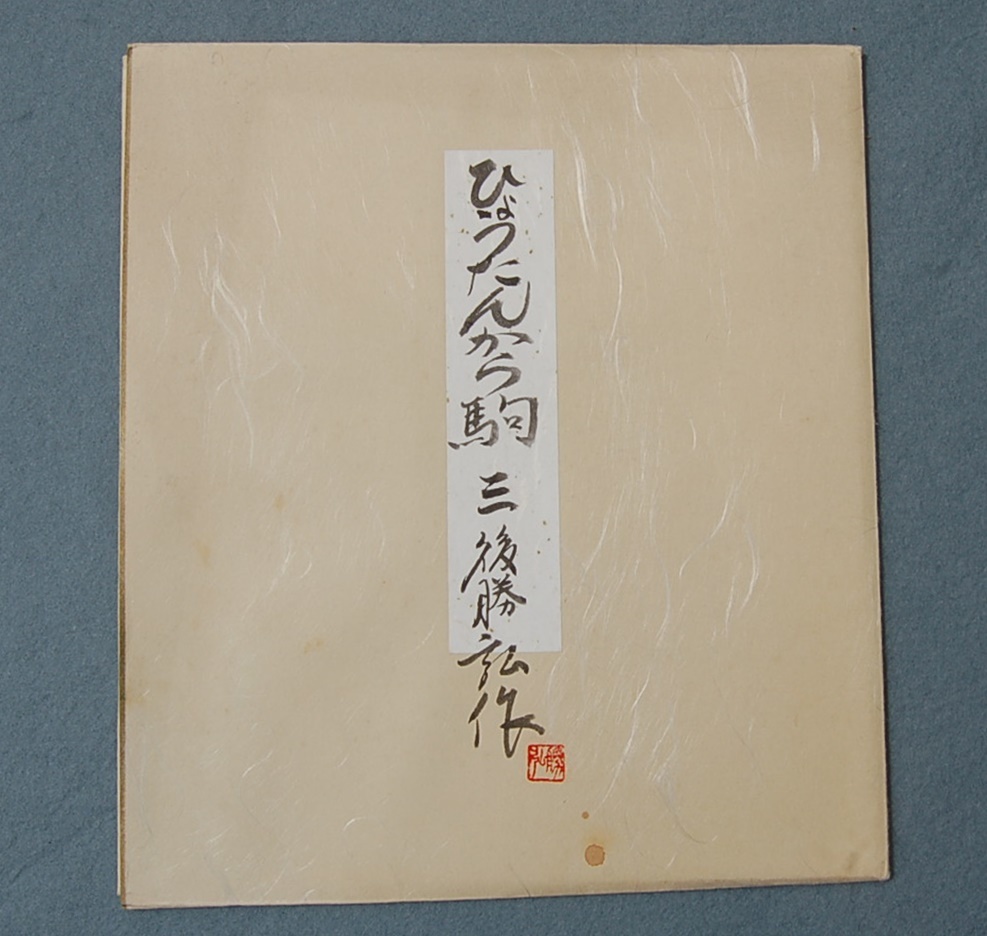 ひょうたんから駒 三後勝弘作
勝弘